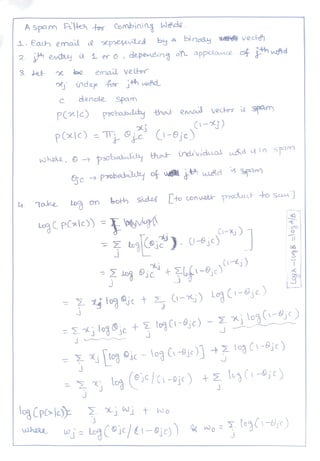 A spam Filter for Combining Words.
1. Each email is represented by a binary vector
2. jth entry is 1 or 0, depending on appearance of jth word
3. Let x be email vector
xj index for jth word
c denote spam
P(x|c) probability that email vector is spam
P(x|c) = πj θjc^xj (1-θjc)^(1-xj)
where, θ → probability that individual word is in spam
θjc → probability of jth word is spam
4. Take log on both sides [to convert product to sum]
log(P(x|c)) = Σj
= Σj log[(θjc)^xj . (1-θjc)^(1-xj)]
= Σj log θjc^xj + Σj log(1-θjc)^(1-xj)
[logA-logB = logA/B]
= Σj xj log θjc + Σj (1-xj) log(1-θjc)
= Σj xj log θjc + Σj log(1-θjc) - Σj xj log(1-θjc)
= Σj xj [log θjc - log(1-θjc)] + Σj log(1-θjc)
= Σj xj log (θjc/(1-θjc) + Σj log(1-θjc)
log(P(x|c)) = Σj xj wj + w0
where wj = log(θjc/(1-θjc)) & w0 = Σj log(1-θjc)